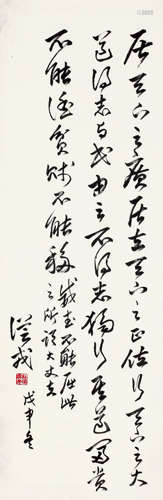 居天下之廣居立天下之正位行天下之大
道得志與民由之不得志獨行其道富貴
不能淫貧賤不能移威武不能屈此
之所謂大丈夫
戊申冬